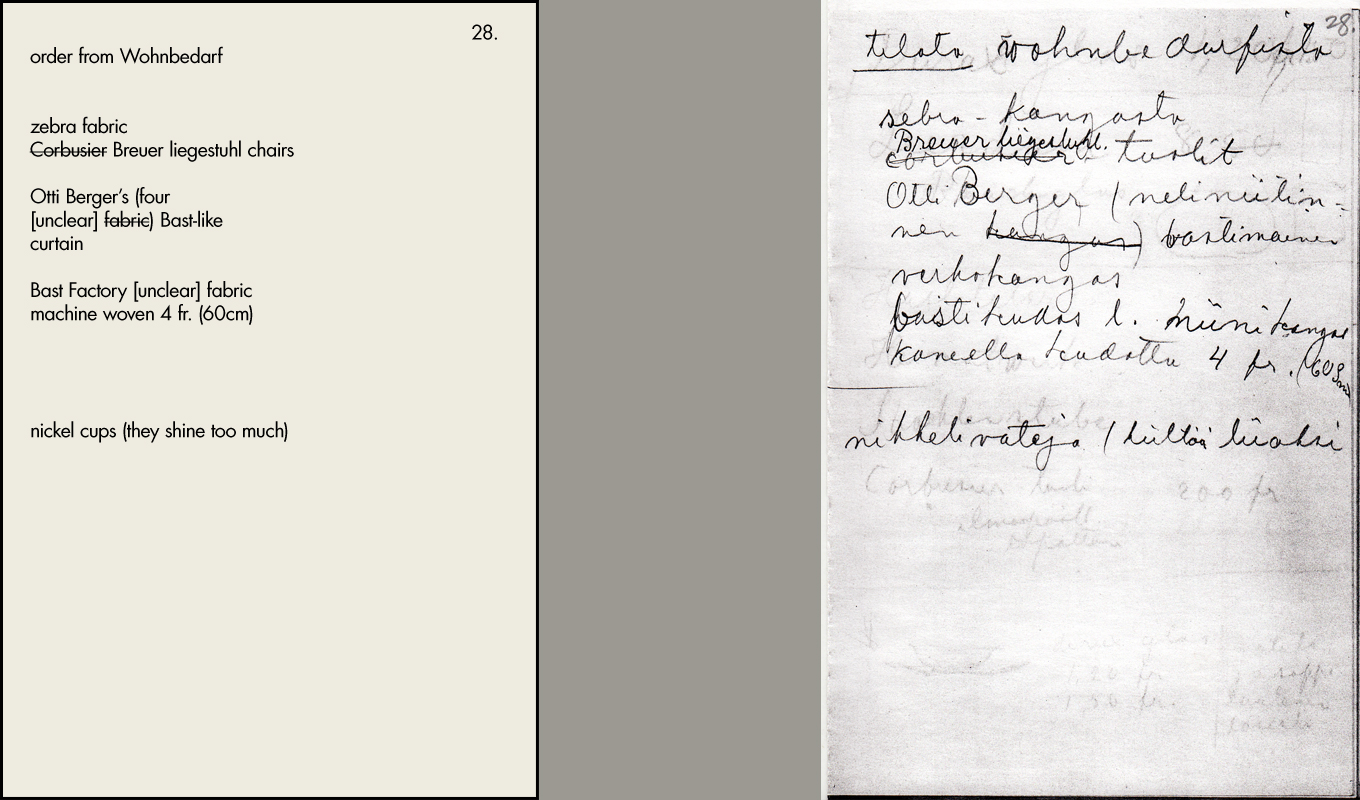 28.
order from Wohnbedarf
zebra fabric
Corbusier Breuer liegestuhl chairs
Otti Berger's (four
[unclear] fabric) Bast-like
curtain
Bast Factory [unclear] fabric
machine woven 4 fr. (60cm)
nickel cups (they shine too much)
28.
tilata wohnbedarfista
sebra-kangasta
Breuer liegestuhl.
corbusier- tuolit
Otti Berger (neliniitin-
nen kangas) bastimainen
verhokangas
bastikudos l. niinikangas
koneella kudottu 4 fr. (60
nikkelivateja (kiiltää liiaksi
Corbusier tuoli 200 fr
1,20 fr
1,50 fr.